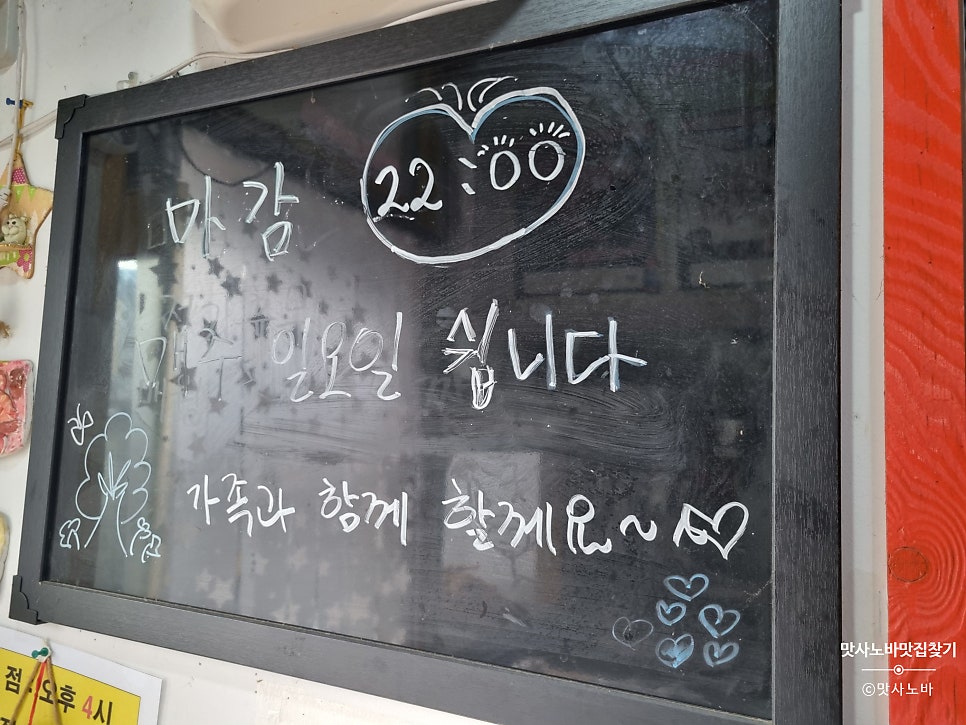 마감 22:00
매주 일요일 쉽니다
가족과 함께 할께요~
점:오후 4시
맛사노바맛집찾기
©맛사노바